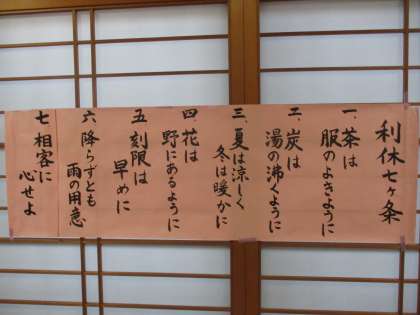 利休七ケ条
一、茶は
服のよきように
二、炭は
湯の沸くように
三、夏は涼しく
冬は暖かに
四 花は
野にあるように
五 刻限は
早めに
六 降らずとも
雨の用意
七 相客に
心せよ